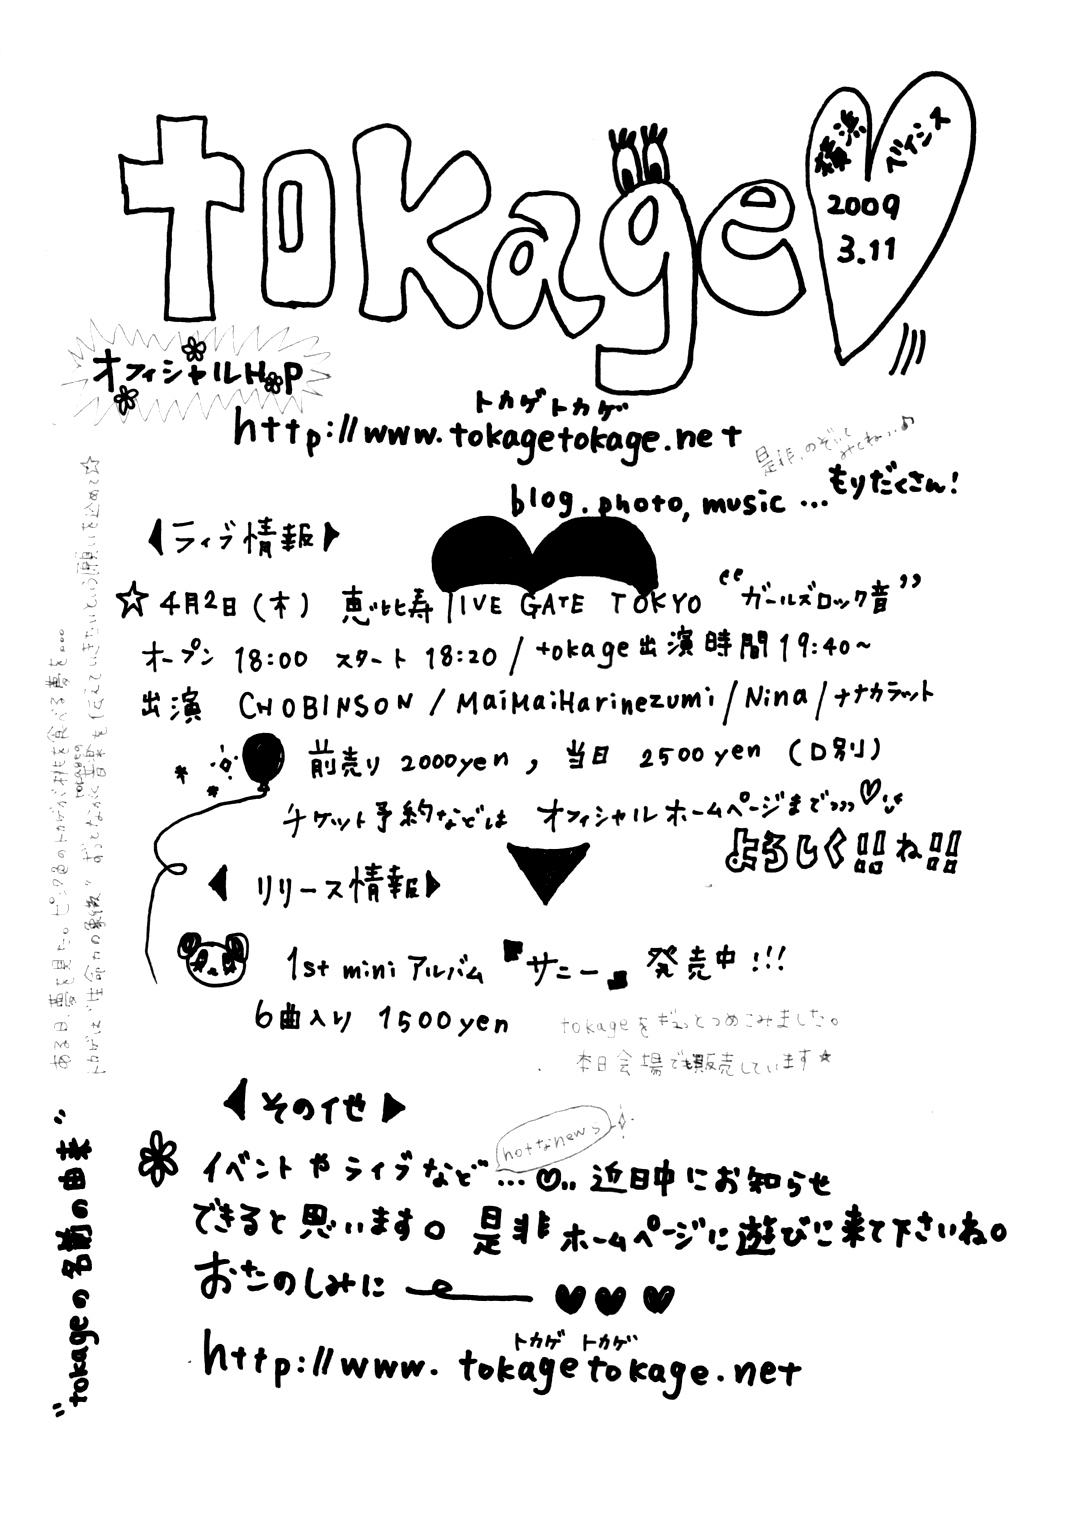 tokage
横浜
ベイシス
2009
3.11
オフィシャルHP
トカゲトカゲ
http://www.tokagetokage.net
是非、のぞいて
みてねっ..♪
blog.photo, music ... もりだくさん!
ライブ情報
☆4月2日(木) 恵比寿 LIVE GATE TOKYO “ガールズロック音”
オープン 18:00 スタート 18:20 / tokage出演時間 19:40~
出演 CHOBINSON / MaiMaiHarinezumi / Nina / ナナカラット
前売り 2000yen , 当日 2500yen (D別)
チケット予約などは オフィシャルホームページまで
よろしく!!ね!!
リリース情報
1st mini アルバム 『サニー』 発売中!!!
6曲入り 1500yen
tokageをギュっとつめこみました。
本日会場でも販売しています☆
その他
hotなnews
イベントやライブなど...♡.. 近日中にお知らせ
できると思います。 是非ホームページに遊びに来て下さいね。
おたのしみに ♥♥♥
トカゲ トカゲ
http://www.tokagetokage.net
“tokageの名前の由来”
ある日、夢を見た。ピンク色のトカゲが桃を食べる夢を。。。
トカゲは“生命力の象徴” ずっとながく音楽を伝えていきたいという願いを込めて☆
tokageの